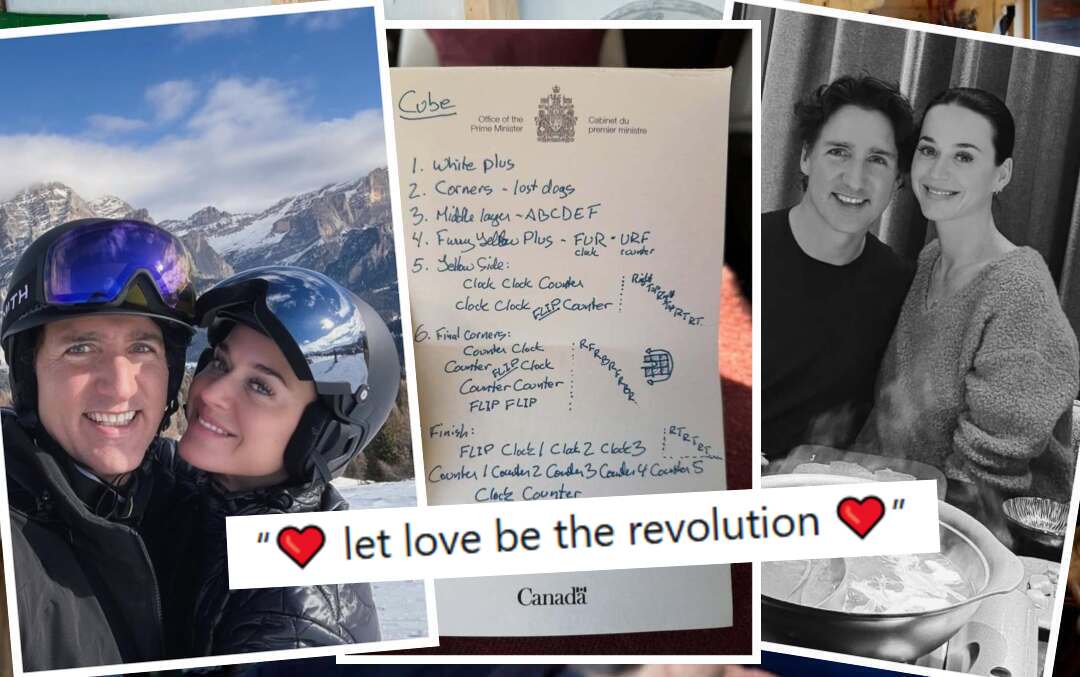 Cube
Office of the
Prime Minister
Cabinet du
premier ministre
1. White plus
2. Corners - lost dogs
3. Middle layer - ABCDEF
4. Funny Yellow Plus - FUR · URF
clock counter
5. Yellow Side:
Clock Clock Counter
Clock Clock FLIP Counter
6. Final Corners:
Counter Clock
Counter FLIP Clock
Counter Counter
FLIP FLIP
Finish:
FLIP Clock 1 Clock 2 Clock 3
RTRTRT
Counter 1 Counter 2 Counter 3 Counter 4 Counter 5
Clock Counter
"❤️ let love be the revolution ❤️"
Canada